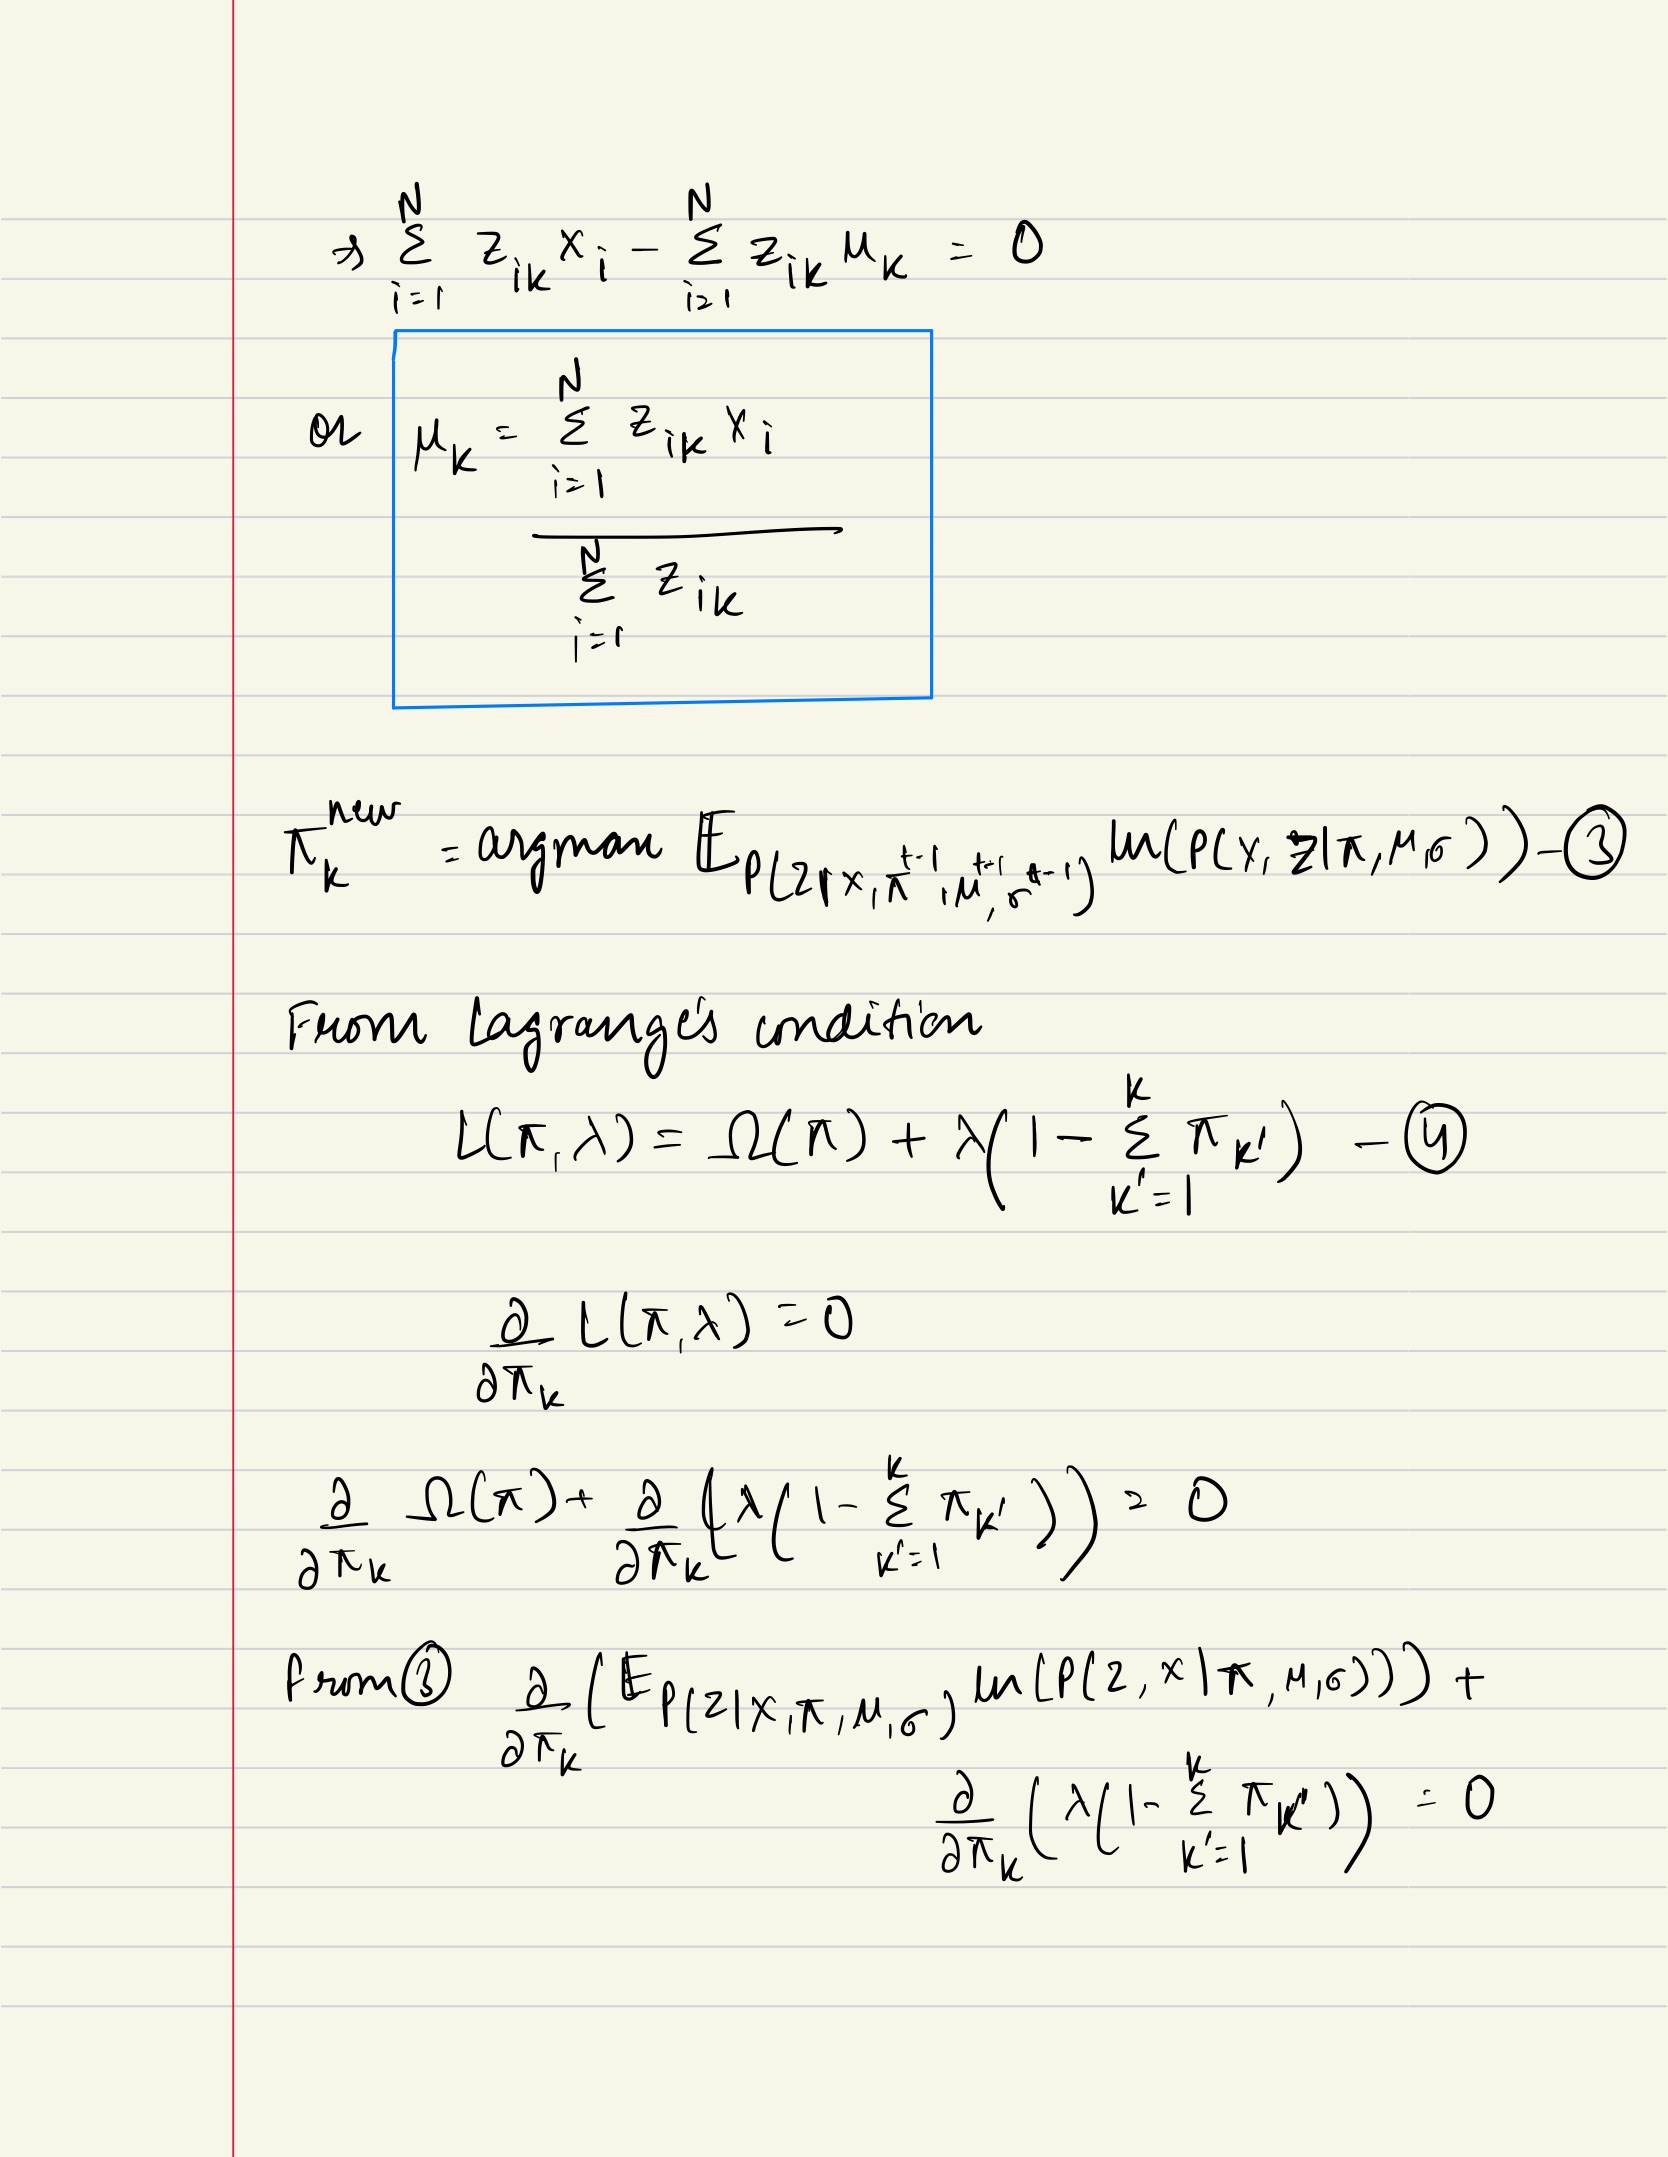 ⇒ N∑i=1 z_ik x_i − N∑i=1 z_ik μ_k = 0
or μ_k = N∑i=1 z_ik x_i
N∑i=1 z_ik
π_k^new = argmax E_P(Z|X, π^t-1, μ^t-1, σ^t-1) ln(P(X, Z|π, μ, σ)) − ③
From Lagrange's condition
L(π, λ) = Ω(π) + λ(1 − K∑k'=1 π_k') − ④
∂/∂π_k L(π, λ) = 0
∂/∂π_k Ω(π) + ∂/∂π_k (λ(1 − K∑k'=1 π_k')) = 0
from ③ ∂/∂π_k (E_P(Z|X, π, μ, σ) ln(P(Z, X|π, μ, σ))) +
∂/∂π_k (λ(1 − K∑k'=1 π_k')) = 0